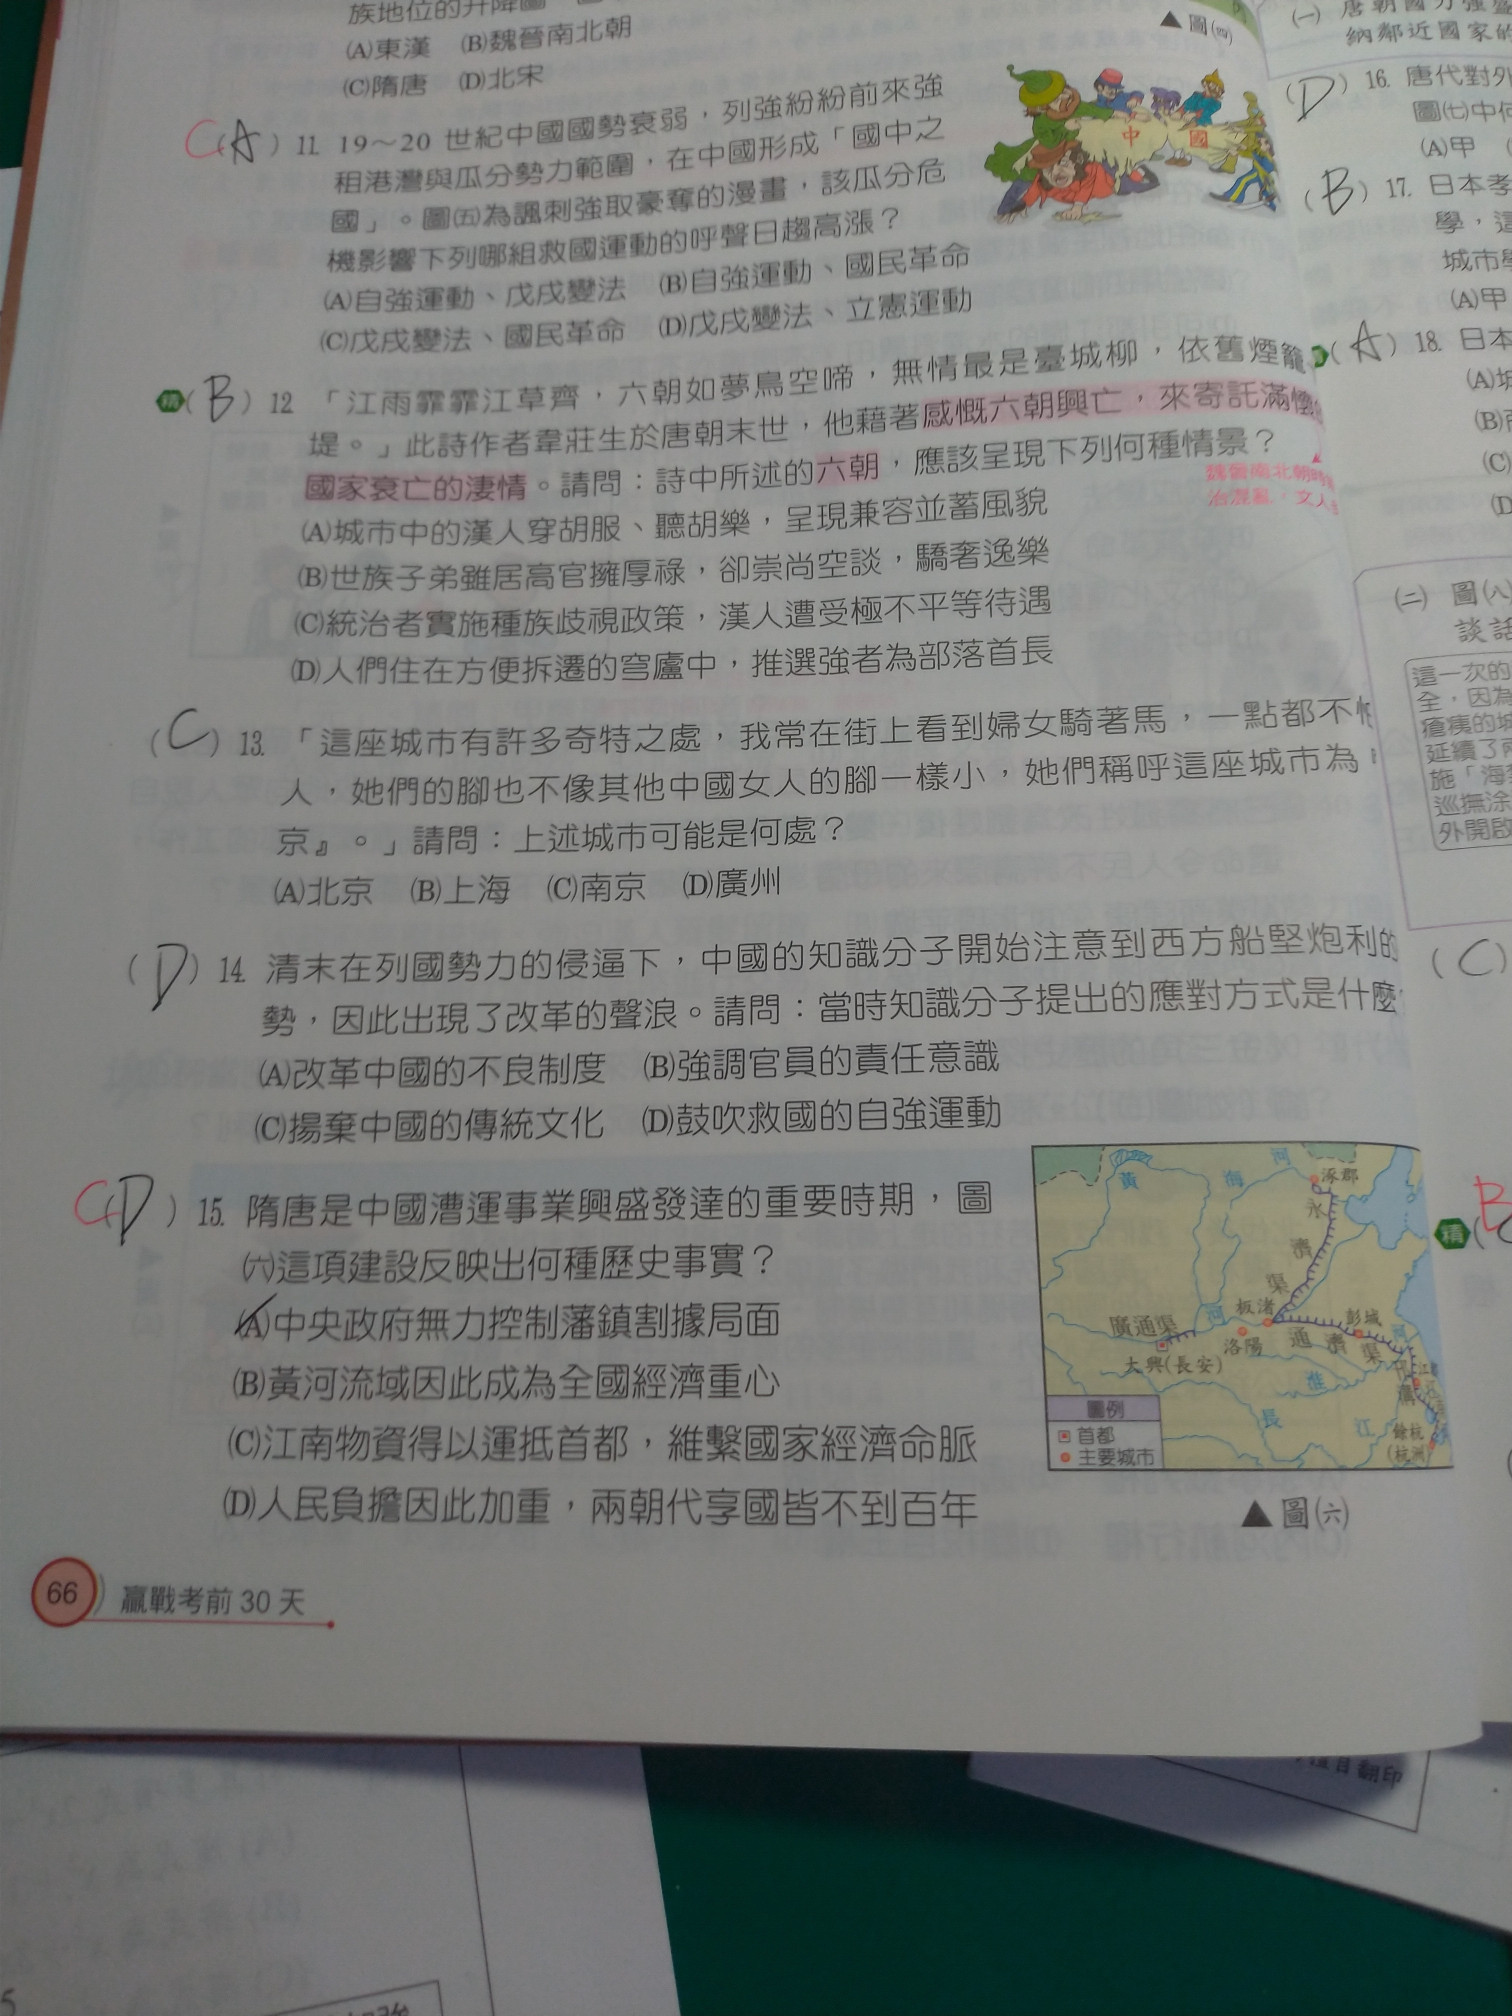 族地位的升降圖
(A)東漢 (B)魏晉南北朝
(C)隋唐 (D)北宋
▲圖(四)
C(A) 11. 19～20 世紀中國國勢衰弱，列強紛紛前來強
租港灣與瓜分勢力範圍，在中國形成「國中之
國」。圖(五)為諷刺強取豪奪的漫畫，該瓜分危
機影響下列哪組救國運動的呼聲日趨高漲？
(A)自強運動、戊戌變法 (B)自強運動、國民革命
(C)戊戌變法、國民革命 (D)戊戌變法、立憲運動
中國
精(B) 12. 「江雨霏霏江草齊，六朝如夢鳥空啼，無情最是臺城柳，依舊煙籠
堤。」此詩作者韋莊生於唐朝末世，他藉著感慨六朝興亡，來寄託滿懷
國家衰亡的淒情。請問：詩中所述的六朝，應該呈現下列何種情景？
魏晉南北朝時
治混亂，文人
(A)城市中的漢人穿胡服、聽胡樂，呈現兼容並蓄風貌
(B)世族子弟雖居高官擁厚祿，卻崇尚空談，驕奢逸樂
(C)統治者實施種族歧視政策，漢人遭受極不平等待遇
(D)人們住在方便拆遷的穹廬中，推選強者為部落首長
(C) 13. 「這座城市有許多奇特之處，我常在街上看到婦女騎著馬，一點都不怕
人，她們的腳也不像其他中國女人的腳一樣小，她們稱呼這座城市為
京』。」請問：上述城市可能是何處？
(A)北京 (B)上海 (C)南京 (D)廣州
(D) 14. 清末在列國勢力的侵逼下，中國的知識分子開始注意到西方船堅炮利的
勢，因此出現了改革的聲浪。請問：當時知識分子提出的應對方式是什麼
(A)改革中國的不良制度 (B)強調官員的責任意識
(C)揚棄中國的傳統文化 (D)鼓吹救國的自強運動
C(D) 15. 隋唐是中國漕運事業興盛發達的重要時期，圖
(六)這項建設反映出何種歷史事實？
(A)中央政府無力控制藩鎮割據局面
(B)黃河流域因此成為全國經濟重心
(C)江南物資得以運抵首都，維繫國家經濟命脈
(D)人民負擔因此加重，兩朝代享國皆不到百年
黃
海
河
涿郡
永
濟
渠
廣通渠
河
板渚
洛陽
通
濟
渠
彭城
河
大興(長安)
淮
邗
溝
江都
長
江
餘杭
(杭州)
圖例
首都
主要城市
▲圖(六)
66
贏戰考前 30 天
(一) 唐朝國力強盛
納鄰近國家的
(D) 16. 唐代對外
圖(七)中何
(A)甲
(B) 17. 日本孝
學，這
城市
(A)甲
(A) 18. 日本
(A)
(B)
(C)
(D
(二) 圖(八)
談話
這一次的
全，因為
瘡痍的
延續了
施「海
巡撫涂
外開啟
(C)
B
精
翻印